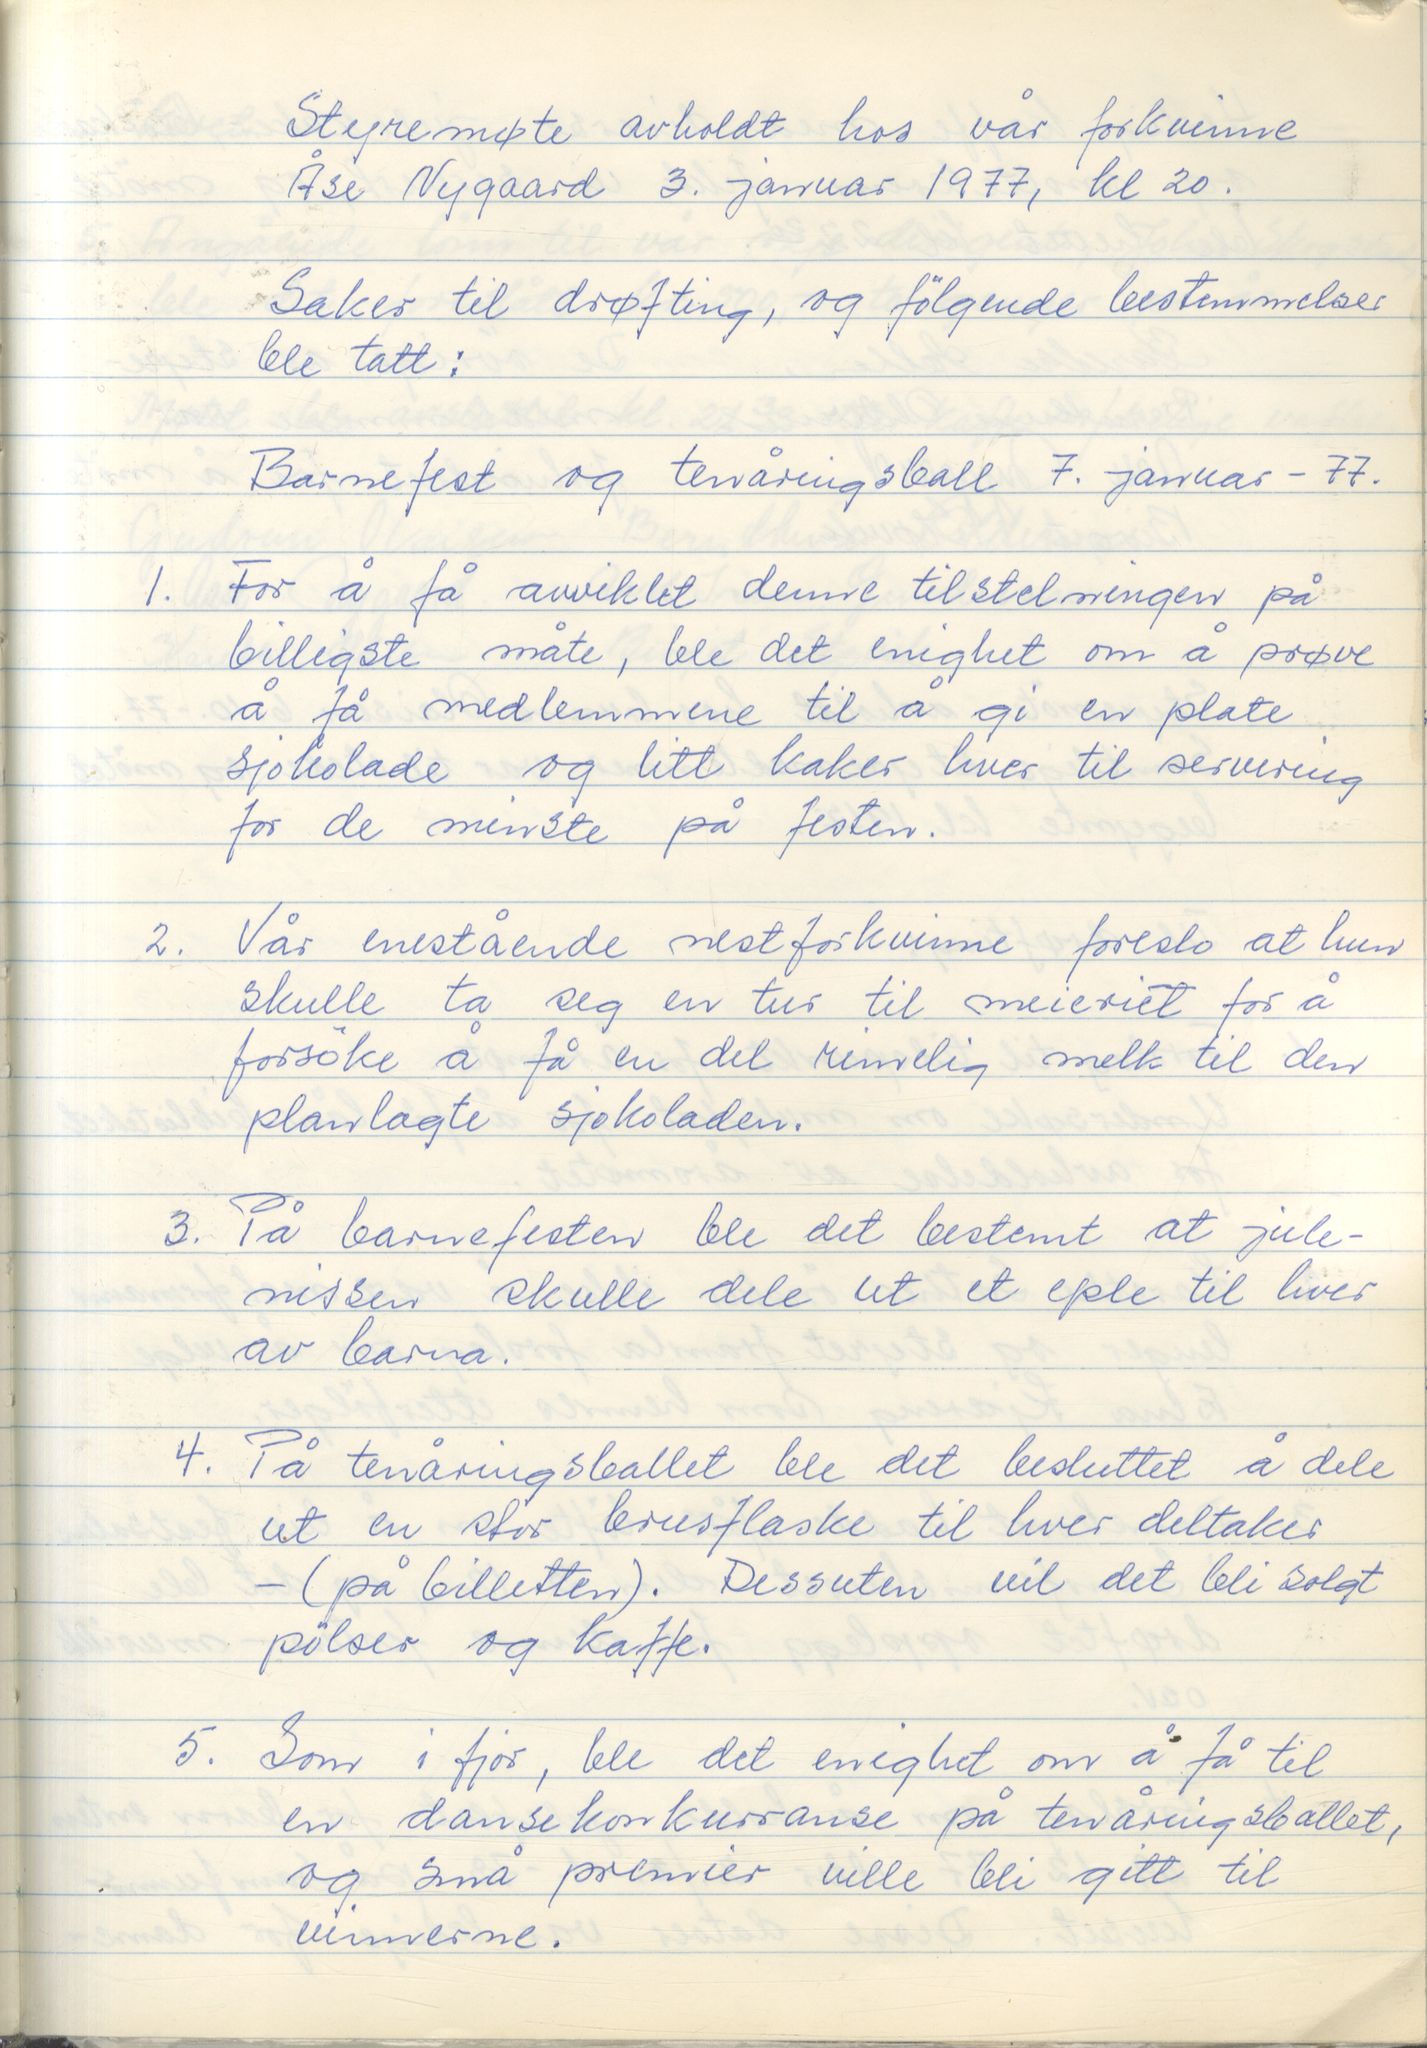 Styremøte avholdt hos vår forkvinne
Åse Nygaard 3. januar 1977, kl 20.
Saker til drøfting, og fölgende bestemmelser
ble tatt:
Barnefest og tenåringsball 7. januar - 77.
1. For å få avviklet denne tilstelningen på
billigste måte, ble det enighet om å prøve
å få medlemmene til å gi en plate
sjokolade og litt kaker hver til servering
for de minste på festen.
2. Vår enestående nestforkvinne foreslo at hun
skulle ta seg en tur til meieriet for å
forsöke å få en del rimelig melk til den
planlagte sjokoladen.
3. På barnefesten ble det bestemt at jule-
nissen skulle dele ut et eple til hver
av barna.
4. På tenåringsballet ble det besluttet å dele
ut en stor brusflaske til hver deltaker
- (på billetten). Dessuten vil det bli solgt
pölser og kaffe.
5. Som i fjor, ble det enighet om å få til
en dansekonkurranse på tenåringsballet,
og små premier ville bli gitt til
vinnerne.